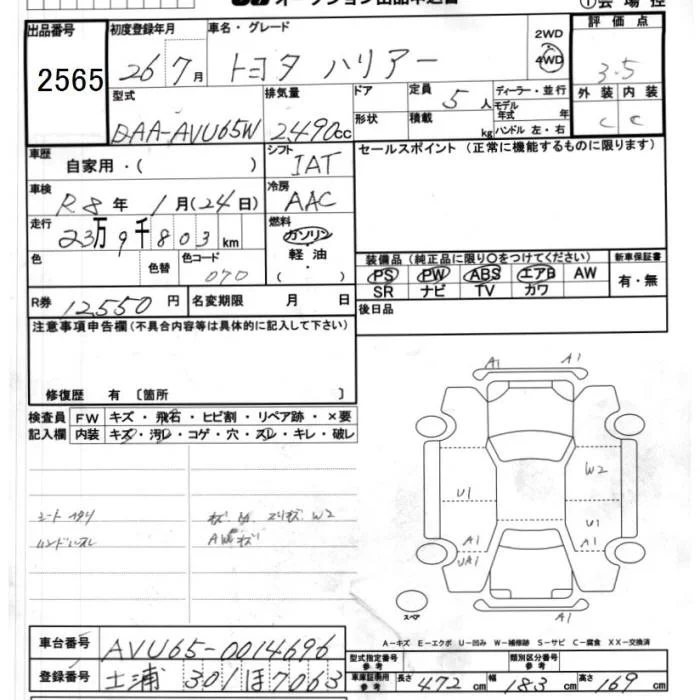 オークション出品申込書
①会場控
出品番号 2565
初度登録年月 26年7月
車名・グレード トヨタ ハリアー
2WD
4WD
評価点 3.5
外装 内装
C C
型式 DAA-AVU65W
排気量 2490cc
ドア
形状
定員 5人
積載 kg
ディーラー・並行
モデル年式 年
ハンドル 左・右
車歴 自家用・( )
シフト IAT
セールスポイント (正常に機能するものに限ります)
車検 R8年 1月(24日)
冷房 AAC
走行 23万9千803km
燃料 ガソリン
軽油
・( )
色 色替 色コード 070
装備品 (純正品に限り○をつけてください) 新車保証書
PS PW ABS エアB AW 有・無
SR ナビ TV カワ
R券 12550円 名変期限 月 日
後日品
注意事項申告欄(不具合内容等は具体的に記入して下さい)
修復歴 有 〔箇所 〕
検査員記入欄 FW キズ・飛石・ヒビ割・リペア跡・×要
内装 キズ・汚レ・コゲ・穴・スレ・キレ・破レ
A1 A1
W2
U1
U1
A1 A1
UA1
A1
スペア
シートヘタリ
ハンドルスレ
W2
A-キズ E-エクボ U-凹み W-補修跡 S-サビ C-腐食 XX-交換済
車台番号 AVU65-0014696
型式指定番号 参考 類別区分番号 参考
登録番号 土浦 301 ほ 7063
車庫証明用 参考 長さ 472cm 幅 183cm 高さ 169cm